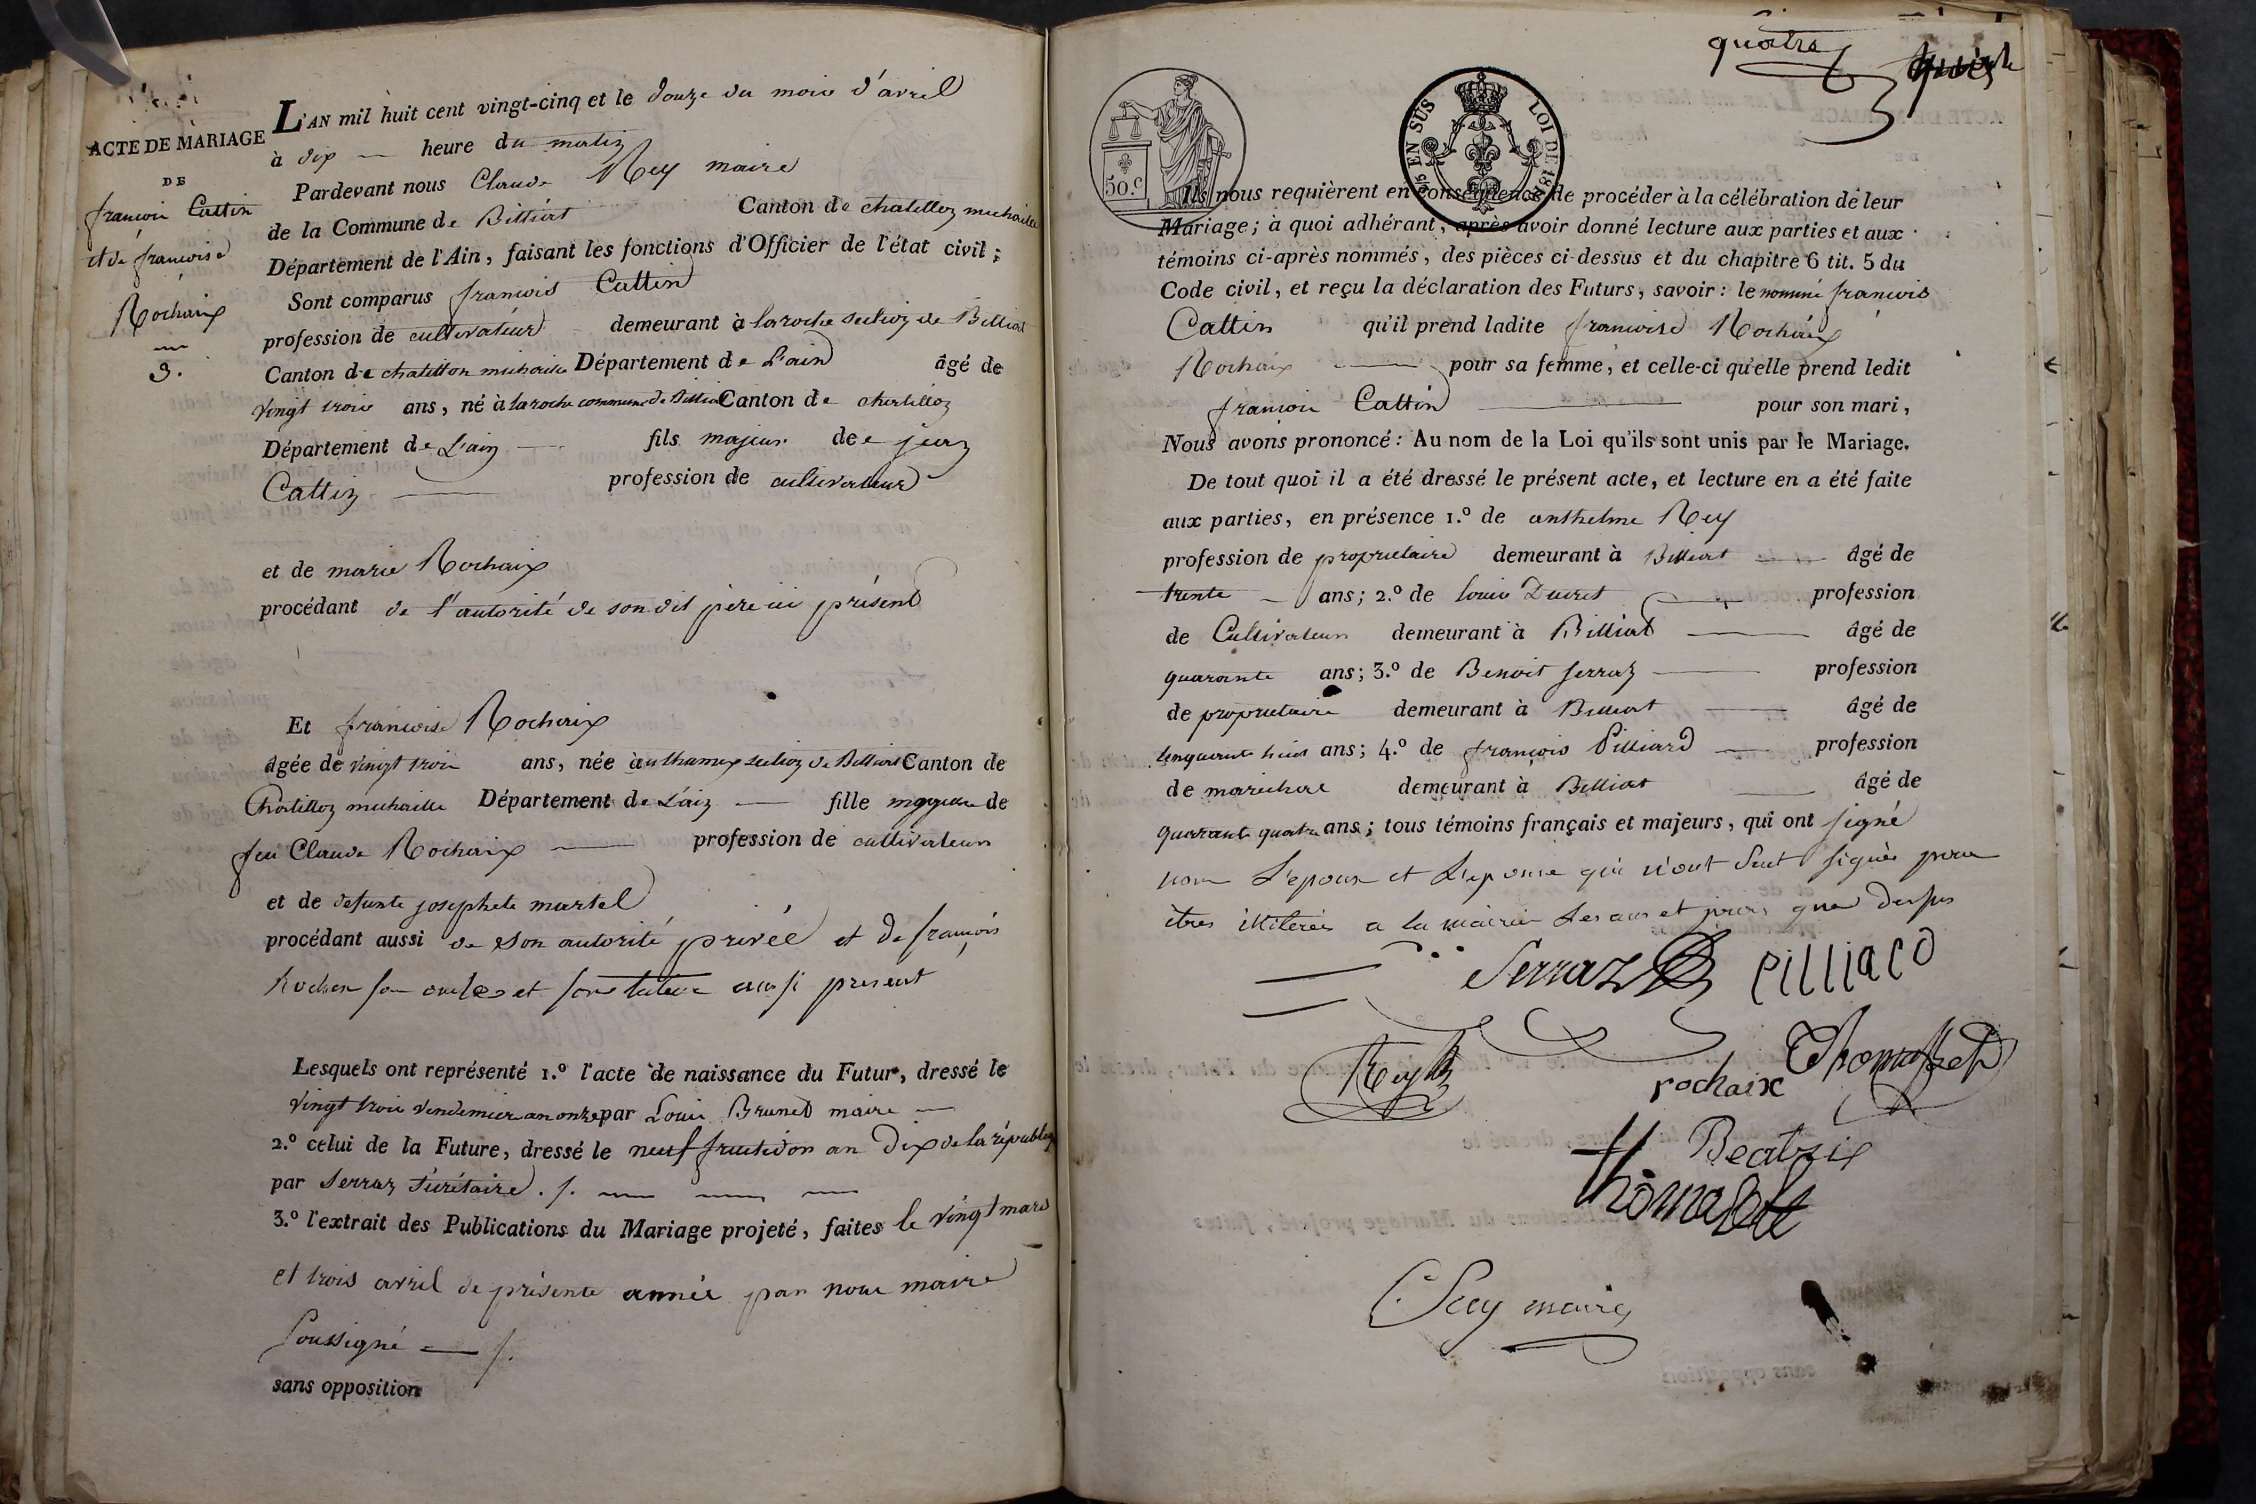 ACTE DE MARIAGE
DE
françois Cattin
et de françoise
Rochaix
3.
L'AN mil huit cent vingt-cinq et le douze du mois d'avril
à dix heure du matin
Pardevant nous Claude Rey maire
de la Commune de Billiat Canton de chatillon michaille
Département de l'Ain, faisant les fonctions d'Officier de l'état civil ;
Sont comparus francois Cattin
profession de cultivateur demeurant à laroche section de Billiat
Canton de chatillon michaille Département de L'ain âgé de
vingt trois ans, né à laroche commune de Billiat Canton de chatillon
Département de L'ain fils majeur de jean
Cattin profession de cultivateur
et de marie Rochaix
procédant de l'autorité de son dit père ici présent
Et francoise Rochaix
âgée de vingt trois ans, née à section de Billiat Canton de
Chatillon michaille Département de L'ain fille majeure de
feu Claude Rochaix profession de cultivateur
et de defunte josephete martel
procédant aussi de son autorité privée et de françois
son oncle et son tuteur aussi present
Lesquels ont représenté 1.º l'acte de naissance du Futur, dressé le
vingt trois vendemier an onze par Louis Brunet maire
2.º celui de la Future, dressé le neuf fructidor an Dix de la républiq
par Serraz Sécrétaire ./.
3.º l'extrait des Publications du Mariage projeté, faites le vingt mars
et trois avril de présente année par nous maire
Soussigné /.
sans opposition
quatre
50.c
EN SUS LOI DE
Ils nous requièrent en conséquence de procéder à la célébration de leur
Mariage ; à quoi adhérant, après avoir donné lecture aux parties et aux
témoins ci-après nommés, des pièces ci-dessus et du chapitre 6 tit. 5 du
Code civil, et reçu la déclaration des Futurs, savoir : le nommé francois
Cattin qu'il prend ladite francoise Rochaix
Rochaix pour sa femme, et celle-ci qu'elle prend ledit
francois Cattin pour son mari,
Nous avons prononcé : Au nom de la Loi qu'ils sont unis par le Mariage.
De tout quoi il a été dressé le présent acte, et lecture en a été faite
aux parties, en présence 1.º de anthelme Rey
profession de proprietaire demeurant à Billiat âgé de
trente ans ; 2.º de Louis Ducret profession
de Cultivateur demeurant à Billiat âgé de
quarante ans ; 3.º de Benoit Serraz profession
de proprietaire demeurant à Billiat âgé de
cinquante huit ans ; 4.º de françois Pilliard profession
de marechal demeurant à Billiat âgé de
quarante quatre ans ; tous témoins français et majeurs, qui ont signé
non L'epoux et L'epouse qui n'ont Sut signés pour
êtres illiterés a la mairie Les ans et jours que dessus
Serraz PilliaRD
Rey
rochaix Thomasset
Beatrix
thomasset
Rey maire